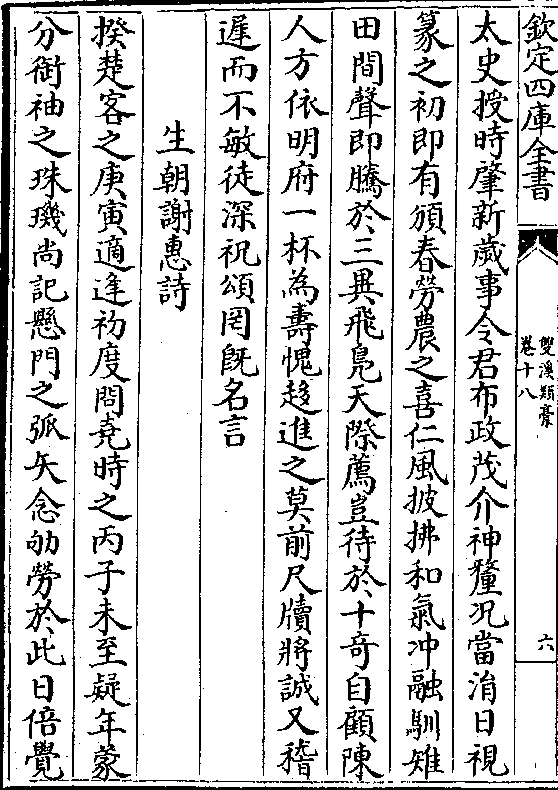 欽定四庫全書
雙溪類稾
卷十八
六
太史授時肇新歲事令君布政茂介神釐况當涓日視
篆之初即有頒春勞農之喜仁風披拂和氣冲融馴雉
田間聲即騰於三異飛鳧天際薦豈待於十奇自顧陳
人方依明府一杯為壽愧趍進之莫前尺牘將誠又稽
遲而不敏徒深祝頌罔旣名言
生朝謝惠詩
揆楚客之庚寅適逢初度問堯時之丙子未至疑年蒙
分銜袖之珠璣尚記懸門之弧矢念劬勞於此日倍覺